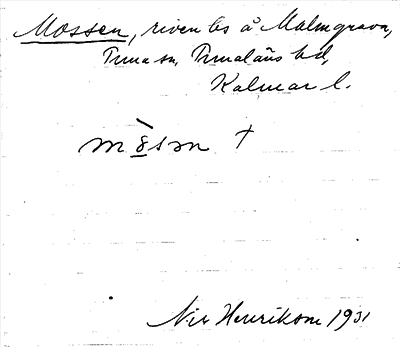 Mossen, riven ls å Malmgrava,
Tuna sn, Tunaläns hd,
Kalmar l.
mòsɷn †
Nils Henrikson 1931